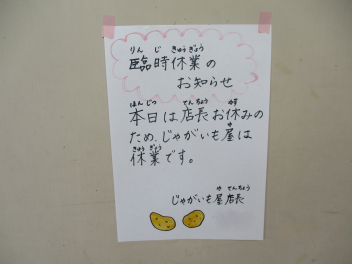 りんじ きゅうぎょう
臨時休業の
お知らせ
ほんじつ てんちょう やす
本日は店長お休みの
や
ため、じゃがいも屋は
きゅうぎょう
休業です。
や てんちょう
じゃがいも屋店長